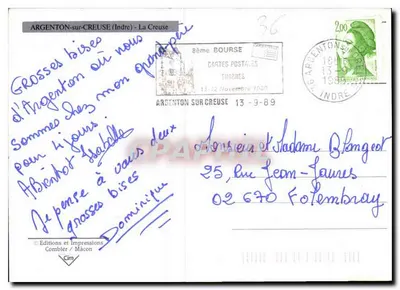 ARGENTON-sur-CREUSE (Indre) - La Creuse
Grosses bises
d'Argenton où nous
sommes chez mon grand père
pour 4 jours.
A Bientôt Isabelle
Je pense à vous deux
grosses bises
Dominique
© Editions et Impressions
Combier Mâcon
Cim
86
8ème BOURSE
CARTES POSTALES
TIMBRES
ARGENTON SUR CREUSE 13-9-89
ARGENTON
INDRE
2,00
Monsieur et Madame Blangeot
25, Rue Jean-Jaures
02 670 Folembray